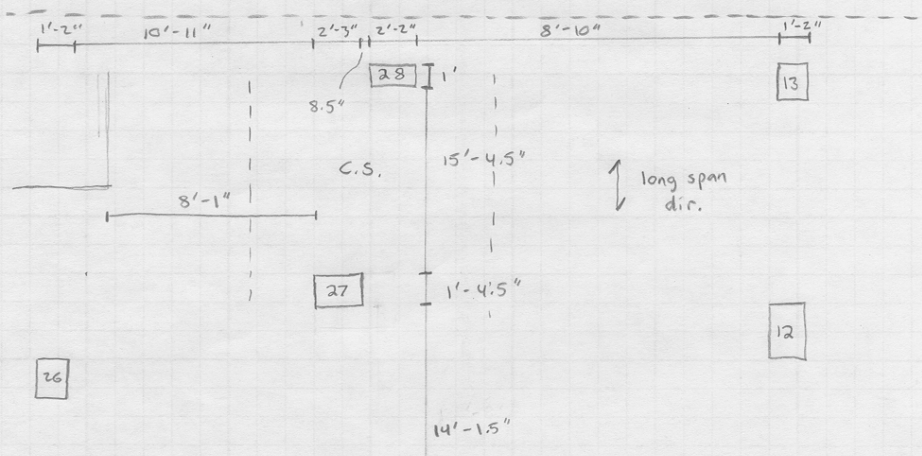 1'-2" 10'-11" 2'-3" 2'-2" 8'-10" 1'-2"
28 1' 13
8.5"
C.S. 15'-4.5" long span
dir.
8'-1"
27 1'-4.5"
12
26
14'-1.5"